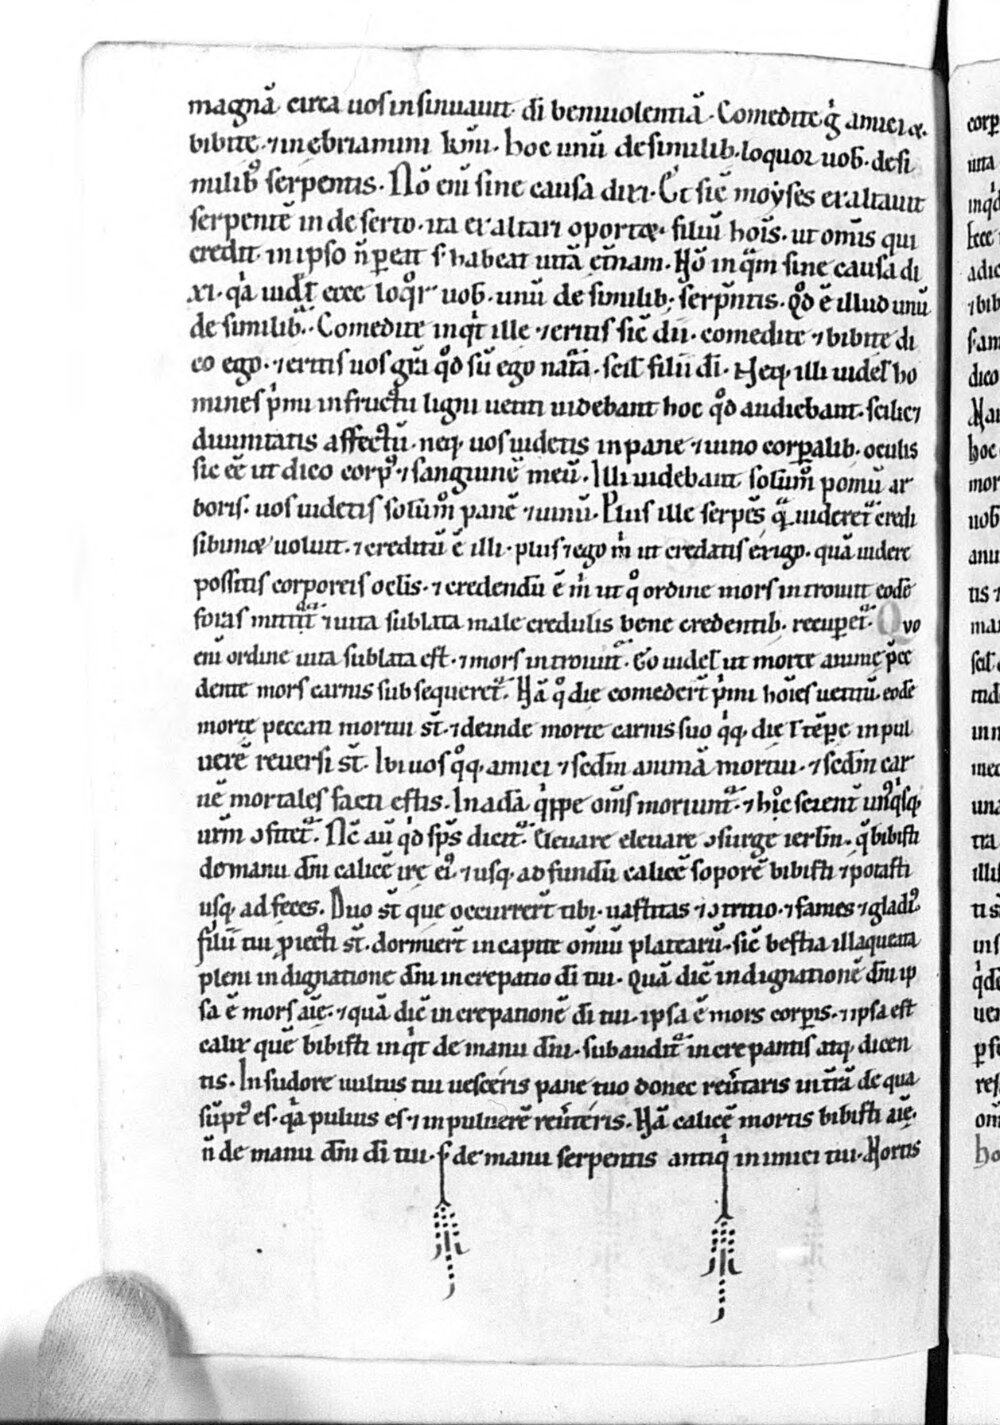 magnā circa uos insinuauit di beniuolentiā. Comedite g̊ amici ⁊
bibite. ⁊ inebriamini kmi. hoc unū de similib. loquor uob. de si
milib⁹ serpentis. Nō eni sine causa dixi. Et sic moyses exaltauit
serpentē in deserto. ita exaltari oportet filiū hois. ut omis qui
credit in ipso n̄ pereat s; habeat uitā etnam. Nō inq̄m sine causa di
xi. q̄a uidet ecce loqr uob. unū de similib; serpentis. Qd ē illud unū
de similib. Comedite inqt ille ⁊ eritis sic dii. comedite ⁊ bibite di
co ego. ⁊ eritis uos grā qd sū ego nat̄a. scil filii di. Neq. illi uidel ho
mines p̄mi in fructu ligni uetiti uidebant hoc qd audiebant. scilic
diuinitatis affectū. neq. uos uidetis in pane ⁊ uino corpalib. oculis
sic eē ut dico corp⁹ ⁊ sanguinē meū. Illi uidebant solum pomū ar
boris. uos uidetis solum panē ⁊ uinū. Prius ille serpēs quā uideret̄ credi
sibimet uoluit. ⁊ creditū ē illi. plus ⁊ ego m̄ ut credatis exigo. quā uidere
possitis corporeis oclis. ⁊ credendū ē m̄ ut q̊ ordine mors introiuit eodē
foras mittat̄ ⁊ uita sublata male credulis bene credentib. recuperet̄. Quo
eni ordine uita sublata est. ⁊ mors introiuit. Eo uidel ut morte anime p̄ce
dente mors carnis subsequeret̄. Nā q̊ die comederūt p̄mi hoies uetitū. eodē
morte peccati mortui st̄. ⁊ deinde morte carnis suo q̄q. die l tēpe in pul
uerē reuersi st̄. Ibi uos q̊q. amici ⁊ sedm animā mortui. ⁊ sedm car
nē mortales facti estis. In adā q̄ppe oms moriunt̄. ⁊ hic scient unqsq
urm ɔfitet̄. Nē au qd sps dicit̄. Eleuare eleuare ɔsurge ierlm. q̄ bibisti
de manu dni calicē ire ei⁹. ⁊ usq. ad fundū calicē soporē bibisti ⁊ potasti
usq. ad feces. Duo st̄ que occurrerūt tibi. uastitas ⁊ ɔtritio. ⁊ fames ⁊ gladi⁹.
filii tui p̄iecti st̄. dormierūt in capite omniū platearū. sic bestia illaqueata
pleni indignatione dni increpatio di tui. Quā dic indignationē dni ip
sa ē mors aie. ⁊ quā dic increpationē di tui. ipsa ē mors corpis. ⁊ ipsa est
calix quē bibisti inqt de manu dni. subaudit̄ increpantis atq. dicen
tis. In sudore uultus tui uesceris pane tuo donec reūtaris in t̄rā de qua
sūpt⁹ es. q̄a puluis es ⁊ in puluerē reūteris. Nā calicē mortis bibisti aie.
n̄ de manu dni di tui. s; de manu serpentis antiqi inimici tui. Mortis